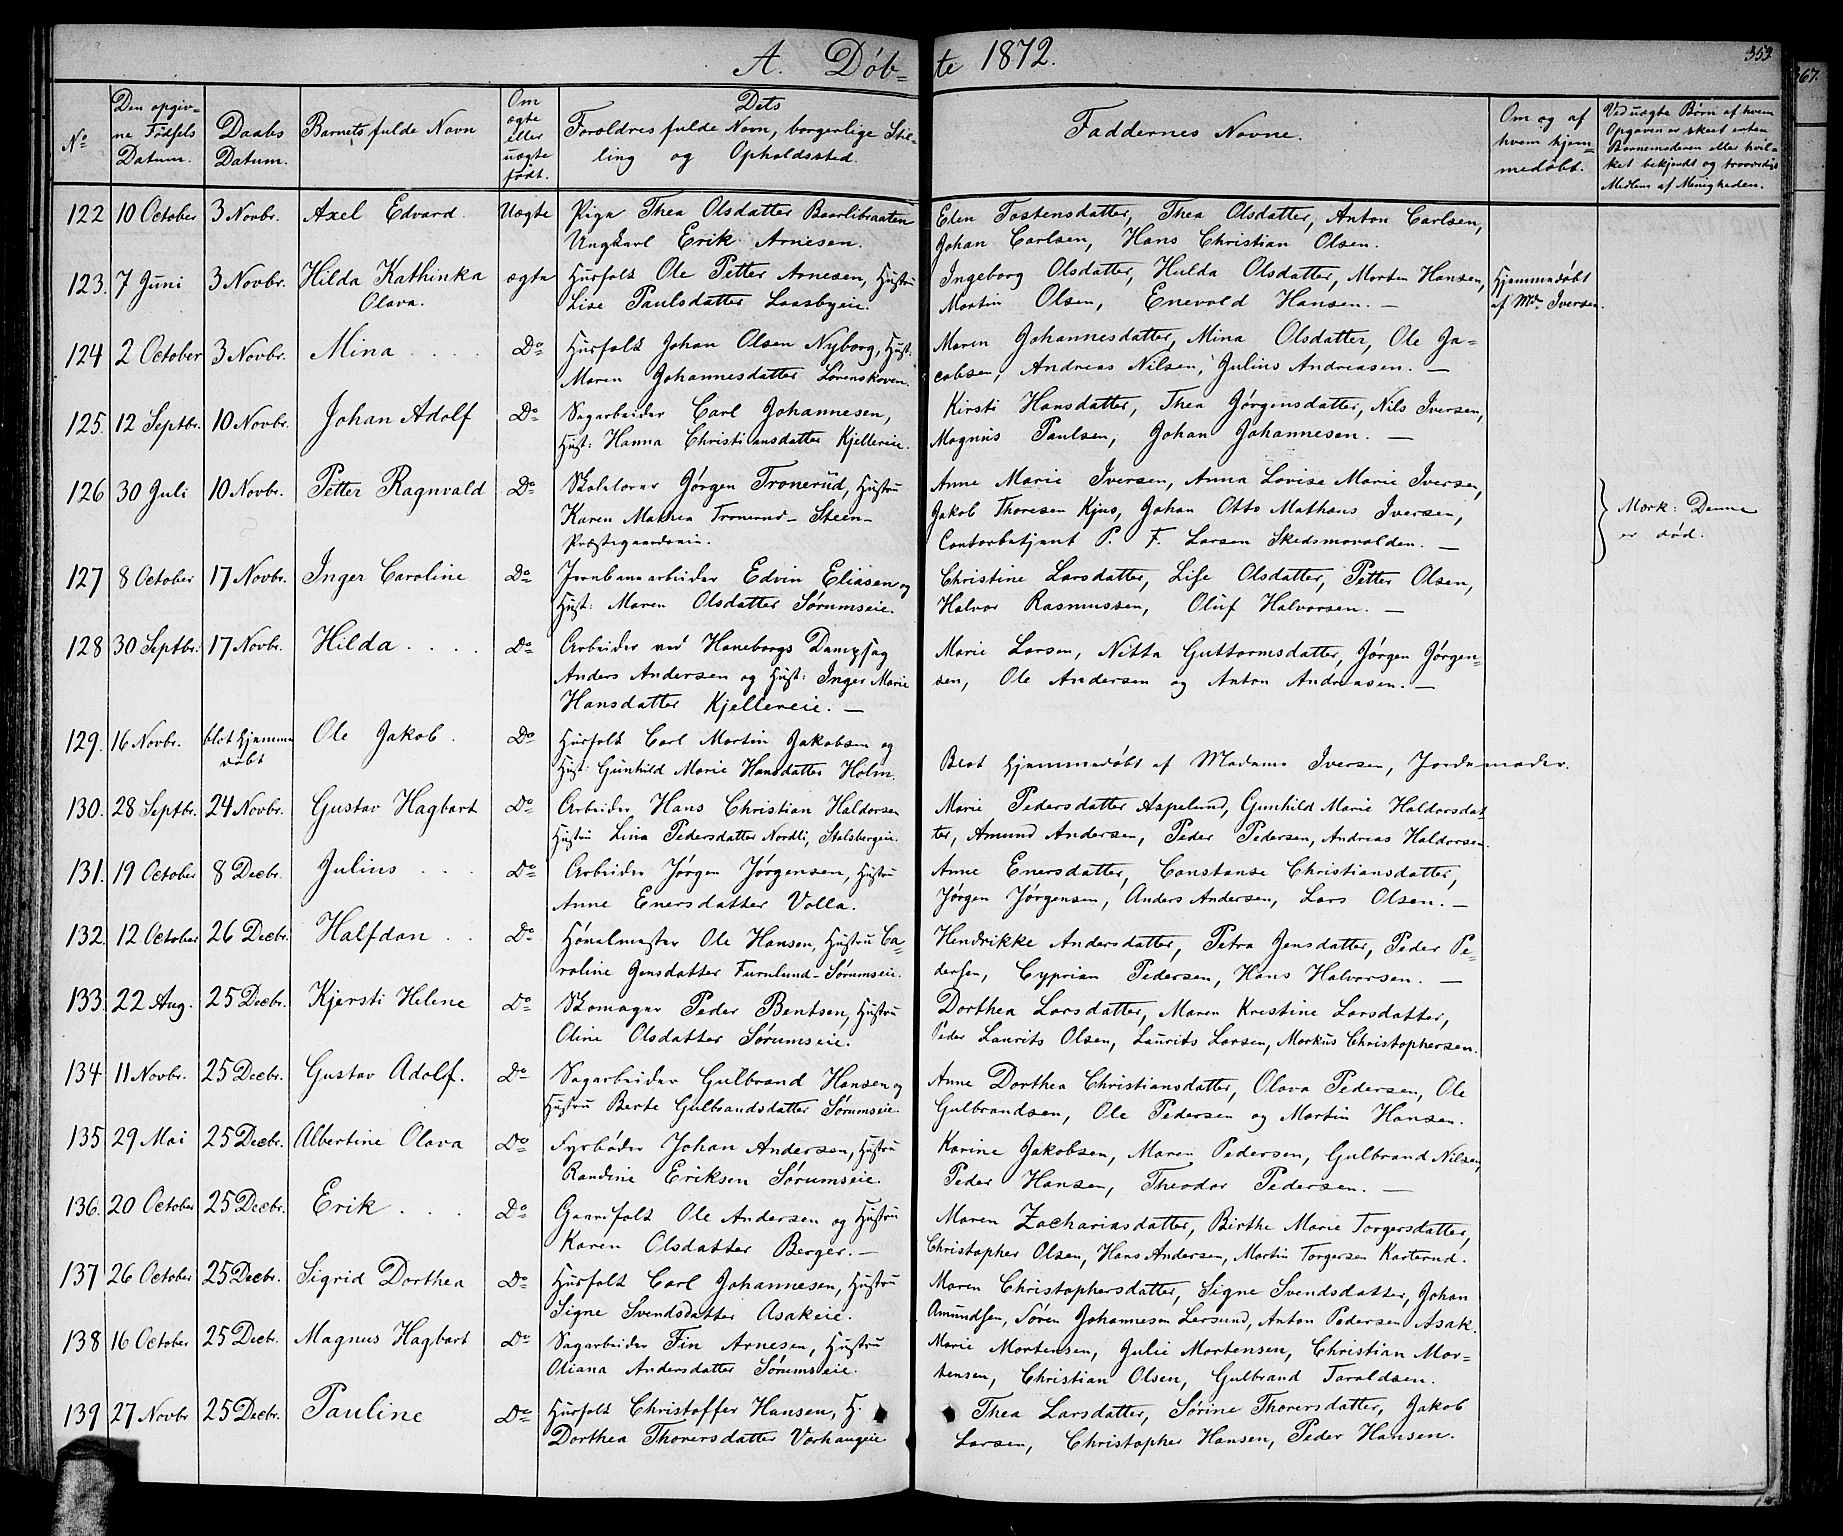 A. Døb- te 1872.
353
367.
No
Den opgiv-
ne Fødsels
Datum.
Daabs
Datum.
Barnets fulde Navn
Om
ægte
eller
uægte
født.
Dets
Forældres fulde Navn, borgerlige Stil-
ling og Opholdssted.
Faddernes Navne.
Om og af
hvem hjem-
medøbt.
Ved uægte Børn af hvem
Opgaven er skeet enten
Barnemoderen eller hvil-
ket bekjendt og troværdig
Medlem af Menigheden.
122 10 October 3 Novbr. Axel Edvard. Uægte Pige Thea Olsdatter Baarlibraaten Eden Tostensdatter, Thea Olsdatter, Anton Carlsen,
Ungkarl Erik Arnesen. Johan Carlsen, Hans Christian Olsen.
123. 7 Juni 3 Novbr. Hilda Kathinka ægte Husfolk Ole Petter Arnesen, Hustru Ingeborg Olsdatter, Hulda Olsdatter, Morten Hansen, Hjemmedøbt
Olava. Lise Paulsdatter Laasbyeie. Martin Olsen, Enevold Hansen. — af Mdm Iversen.
124 2 October 3 Novbr. Mina . . . . Do Husfolk Johan Olsen Nyborg, Hust: Maren Johannesdatter, Mina Olsdatter, Ole Ja-
Maren Johannesdatter Lørenskoven. cobsen, Andreas Nilsen, Julius Andreasen. —
125. 12 Septbr. 10 Novbr. Johan Adolf Do Sagarbeider Carl Johannesen, Kirsti Hansdatter, Thea Jørgensdatter, Nils Iversen,
Hust: Hanna Christiansdatter Kjellereie. Magnus Paulsen, Johan Johannesen. —
126 30 Juli 10 Novbr. Petter Ragnvald Do Skolelærer Jørgen Tronerud, Hustru Anne Marie Iversen, Anna Lovise Marie Iversen,
Karen Mathea Tronerud - Steen- Jakob Thoresen Kjus, Johan Otto Mathæus Iversen, Mærk: Denne
Præstegaardseie. Contorbetjent P. F. Larsen Skedsmovolden. — er død.
127 8 October 17 Novbr. Inger Caroline Do Jernbanearbeider Edvin Eliasen og Christine Larsdatter, Lise Olsdatter, Petter Olsen,
Hust: Maren Olsdatter Sørumseie. Halvor Rasmussen, Oluf Halvorsen. —
128 30 Septbr. 17 Novbr. Hilda . . . . Do Arbeider ved Haneborgs Dampsag Marie Larsen, Nitta Guttormsdatter, Jørgen Jørgen-
Anders Andersen og Hust: Inger Marie sen, Ole Andersen og Anton Andreasen. —
Hansdatter Kjellereie. —
129. 16 Novbr. blot hjemme Ole Jakob. Do Husfolk Carl Martin Jakobsen og
døbt Hust: Gunhild Marie Hansdatter Holm. Blot hjemmedøbt af Madame Iversen, Jordemoder.
130. 28 Septbr. 24 Novbr. Gustav Hagbart Do Arbeider Hans Christian Haldorsen Marie Pedersdatter Aspelund, Gunhild Marie Haldorsdat-
Hustru Lina Pedersdatter Nordli, Stalsbergeie. ter, Amund Andersen, Peder Pedersen, Andreas Haldorsen.
131. 19 October 8 Decbr. Julius . . . Do Arbeider Jørgen Jørgensen, Hustru Anne Enersdatter, Constanse Christiansdatter,
Anne Enersdatter Volla. Jørgen Jørgensen, Anders Andersen, Lars Olsen. —
132. 12 October 26 Decbr. Halfdan . . Do Høvelmester Ole Hansen, Hustru Ca- Hendrikke Andersdatter, Petra Jensdatter, Peder Pe-
roline Jensdatter Furulund - Sørumseie. dersen, Cyprian Pedersen, Hans Halvorsen. —
133. 22 Aug. 25 Decbr. Kjersti Helene Do Skomager Peder Bentsen, Hustru Dorthea Larsdatter, Maren Kristine Larsdatter,
Oline Olsdatter Sørumseie. Peder Laurits Olsen, Laurits Larsen, Markus Christophersen.
134 11 Novbr. 25 Decbr. Gustav Adolf. Do Sagarbeider Gulbrand Hansen og Anne Dorthea Christiansdatter, Olava Pedersen, Ole
Hustru Berte Gulbrandsdatter Sørumseie. Gulbrandsen, Ole Pedersen og Martin Hansen.
135 29 Mai 25 Decbr. Albertine Olava Do Fyrbøder Johan Andersen, Hustru Karine Jakobsen, Maren Pedersen, Gulbrand Nilsen,
Randine Eriksen Sørumseie. Peder Hansen, Theodor Pedersen. —
136. 20 October 25 Decbr. Erik . . . Do Gaardfolk Ole Andersen og Hustru Maren Zachariasdatter, Birthe Marie Torgersdatter,
Karen Olsdatter Berger. — Christopher Olsen, Hans Andersen, Martin Torgersen Karterud.
137 26 October 25 Decbr. Sigrid Dorthea Do Husfolk Carl Johannesen, Hustru Maren Christophersdatter, Signe Svendsdatter, Johan
Signe Svendsdatter Asakeie. Amundsen, Søren Johannesen Lersund, Anton Pedersen Asak.
138 16 October 25 Decbr. Magnus Hagbart Do Sagarbeider Fin Arnesen, Hustru Marie Mortensen, Julie Mortensen, Christian Mor-
Oliana Andersdatter Sørumseie. tensen, Christian Olsen, Gulbrand Taraldsen.
139 27 Novbr 25 Decbr. Pauline Do Husfolk Christoffer Hansen, H. Thea Larsdatter, Sørine Thorersdatter, Jakob
Dorthea Thorersdatter Vorhaugeie Larsen, Christopher Hansen, Peder Hansen.